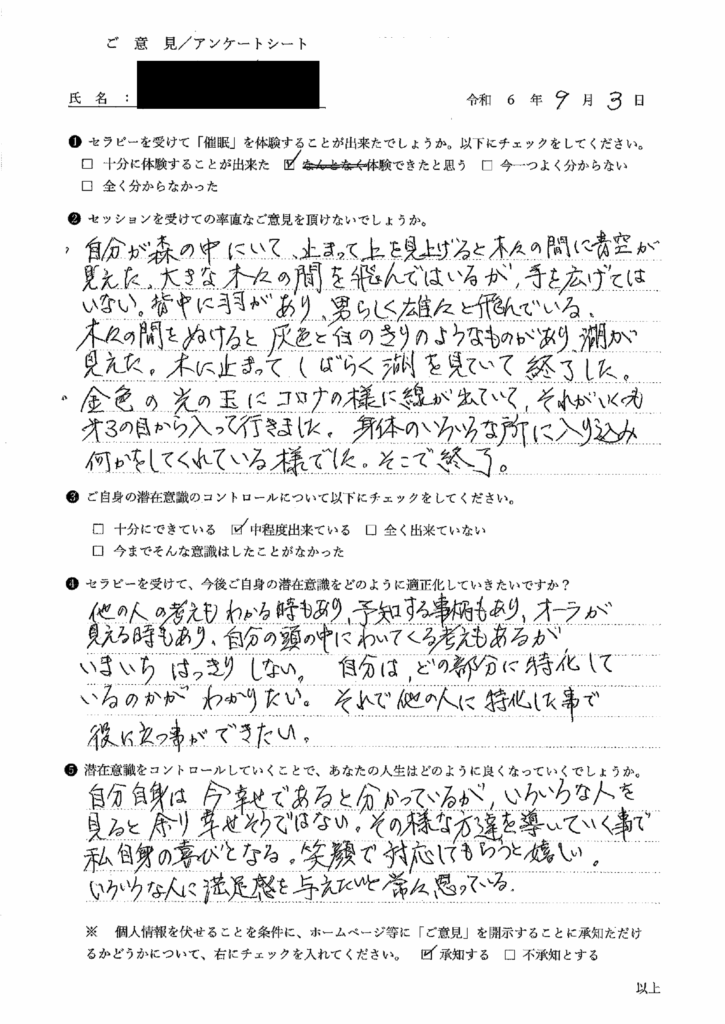 ご 意 見／アンケートシート
氏 名 ：
令和 6 年 9 月 3 日
❶ セラピーを受けて「催眠」を体験することが出来たでしょうか。以下にチェックをしてください。
□ 十分に体験することが出来た ☑ なんとなく体験できたと思う □ 今一つよく分からない
□ 全く分からなかった
❷ セッションを受けての率直なご意見を頂けないでしょうか。
自分が森の中にいて、止まって上を見上げると木々の間に青空が
見えた、大きな木々の間を飛んではいるが、手を広げては
いない。背中に羽があり、男らしく雄々と飛んでいる、
木々の間をぬけると灰色と白のきりのようなものがあり、湖が
見えた。木に止まってしばらく湖を見ていて終了した。
金色の光の玉にコロナの様に線が出ていて、それがいくつも
第3の目から入って行きました。身体のいろいろな所に入り込み
何かをしてくれている様でした。そこで終了。
❸ ご自身の潜在意識のコントロールについて以下にチェックをしてください。
□ 十分にできている ☑ 中程度出来ている □ 全く出来ていない
□ 今までそんな意識はしたことがなかった
❹ セラピーを受けて、今後ご自身の潜在意識をどのように適正化していきたいですか？
他の人の考えもわかる時もあり、予知する事柄もあり、オーラが
見える時もあり、自分の頭の中にわいてくる考えもあるが
いまいちはっきりしない。 自分は、どの部分に特化して
いるのかがわかりたい。それで他の人に特化した事で
役に立つ事ができたい。
❺ 潜在意識をコントロールしていくことで、あなたの人生はどのように良くなっていくでしょうか。
自分自身は今幸せであると分かっているが、いろいろな人を
見ると余り幸せそうではない。その様な方達を導いていく事で
私自身の喜びとなる。笑顔で対応してもらうと嬉しい。
いろいろな人に満足感を与えたいと常々思っている.
※ 個人情報を伏せることを条件に、ホームページ等に「ご意見」を開示することに承知ただけ
るかどうかについて、右にチェックを入れてください。 ☑ 承知する □ 不承知とする
以上